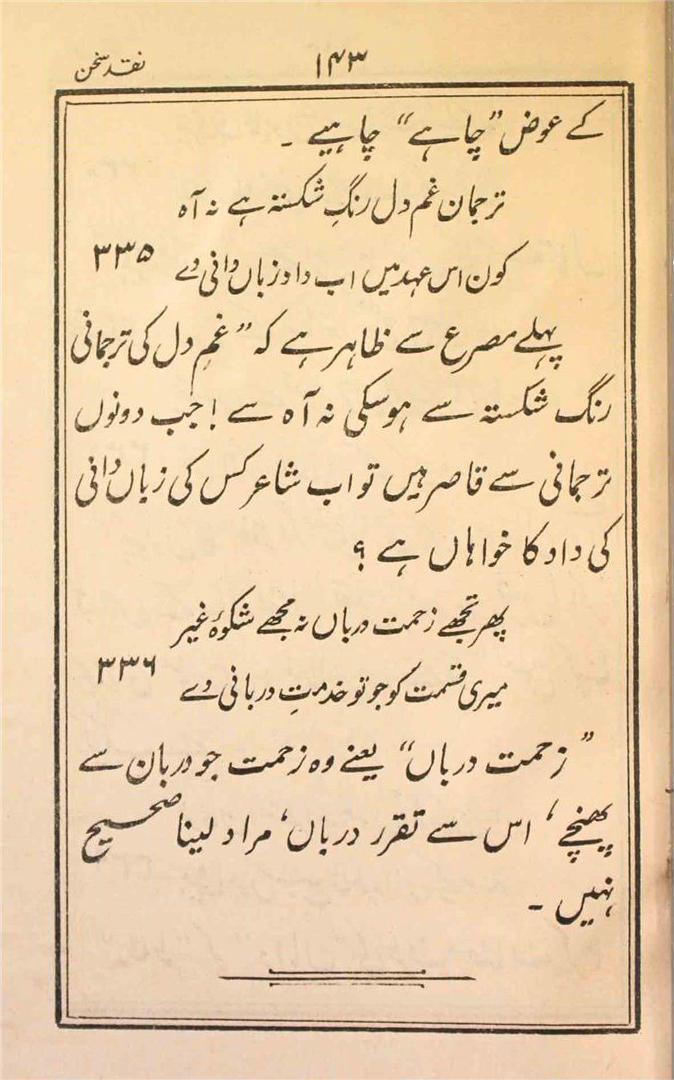 نقد سخن
۱۴۳
کے عوض ”چاہے“ چاہیے ۔
ترجمان غم دل رنگِ شکستہ ہے نہ آہ
کون اس عہد میں اب داد زباں دانی دے ۳۳۵
پہلے مصرع سے ظاہر ہے کہ ”غمِ دل کی ترجمانی
رنگ شکستہ سے ہوسکی نہ آہ سے ! جب دونوں
ترجمانی سے قاصر ہیں تو اب شاعر کس کی زباں دانی
کی داد کا خواہاں ہے ؟
پھر تجھے زحمت درباں نہ مجھے شکوۂ غیر
میری قسمت کو جو تو خدمتِ دربانی دے ۳۳۶
”زحمت درباں“ یعنے وہ زحمت جو دربان سے
پہنچے ‘ اس سے تقرر درباں‘ مراد لینا صحیح
نہیں ۔